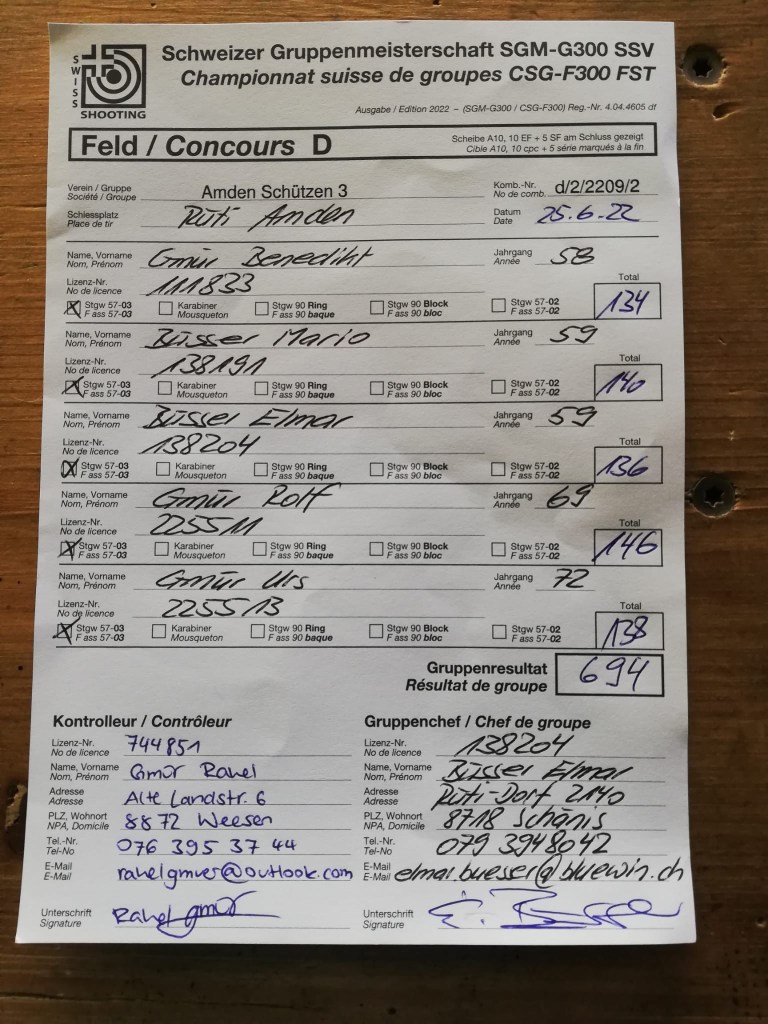 SWISS
SHOOTING
Schweizer Gruppenmeisterschaft SGM-G300 SSV
Championnat suisse de groupes CSG-F300 FST
Ausgabe / Edition 2022 – (SGM-G300 / CSG-F300) Reg.-Nr. 4.04.4605 df
Feld / Concours D
Scheibe A10, 10 EF + 5 SF am Schluss gezeigt
Cible A10, 10 cpc + 5 série marqués à la fin
Verein / Gruppe Amden Schützen 3 Komb.-Nr. d/2/2209/2
Société / Groupe No de comb.
Schiessplatz Rüti Amden Datum 25.6.22
Place de tir Date
Name, Vorname Gmür Benedikt Jahrgang 58
Nom, Prénom Année
Lizenz-Nr. 111833 Total
No de licence
Stgw 57-03 Karabiner Stgw 90 Ring Stgw 90 Block Stgw 57-02 134
F ass 57-03 Mousqueton F ass 90 baque F ass 90 bloc F ass 57-02
Name, Vorname Büsser Mario Jahrgang 59
Nom, Prénom Année
Lizenz-Nr. 138191 Total
No de licence
Stgw 57-03 Karabiner Stgw 90 Ring Stgw 90 Block Stgw 57-02 140
F ass 57-03 Mousqueton F ass 90 baque F ass 90 bloc F ass 57-02
Name, Vorname Büsser Elmar Jahrgang 59
Nom, Prénom Année
Lizenz-Nr. 138204 Total
No de licence
Stgw 57-03 Karabiner Stgw 90 Ring Stgw 90 Block Stgw 57-02 136
F ass 57-03 Mousqueton F ass 90 baque F ass 90 bloc F ass 57-02
Name, Vorname Gmür Rolf Jahrgang 69
Nom, Prénom Année
Lizenz-Nr. 225511 Total
No de licence
Stgw 57-03 Karabiner Stgw 90 Ring Stgw 90 Block Stgw 57-02 146
F ass 57-03 Mousqueton F ass 90 baque F ass 90 bloc F ass 57-02
Name, Vorname Gmür Urs Jahrgang 72
Nom, Prénom Année
Lizenz-Nr. 225513 Total
No de licence
Stgw 57-03 Karabiner Stgw 90 Ring Stgw 90 Block Stgw 57-02 138
F ass 57-03 Mousqueton F ass 90 baque F ass 90 bloc F ass 57-02
Gruppenresultat 694
Résultat de groupe
Kontrolleur / Contrôleur
Lizenz-Nr. 744851
No de licence
Name, Vorname Gmür Rahel
Nom, Prénom
Adresse Alte Landstr. 6
Adresse
PLZ, Wohnort 8872 Weesen
NPA, Domicile
Tel.-Nr. 076 395 37 44
Tel-No
E-Mail rahelgmuer@outlook.com
E-Mail
Unterschrift Rahel Gmür
Signature
Gruppenchef / Chef de groupe
Lizenz-Nr. 138204
No de licence
Name, Vorname Büsser Elmar
Nom, Prénom
Adresse Rüti-Dorf 2140
Adresse
PLZ, Wohnort 8718 Schänis
NPA, Domicile
Tel.-Nr. 079 3948042
Tel-No
E-Mail elmar.buesser@bluewin.ch
E-Mail
Unterschrift E. Büsser
Signature